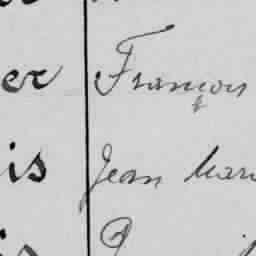 er François
is Jean Mari